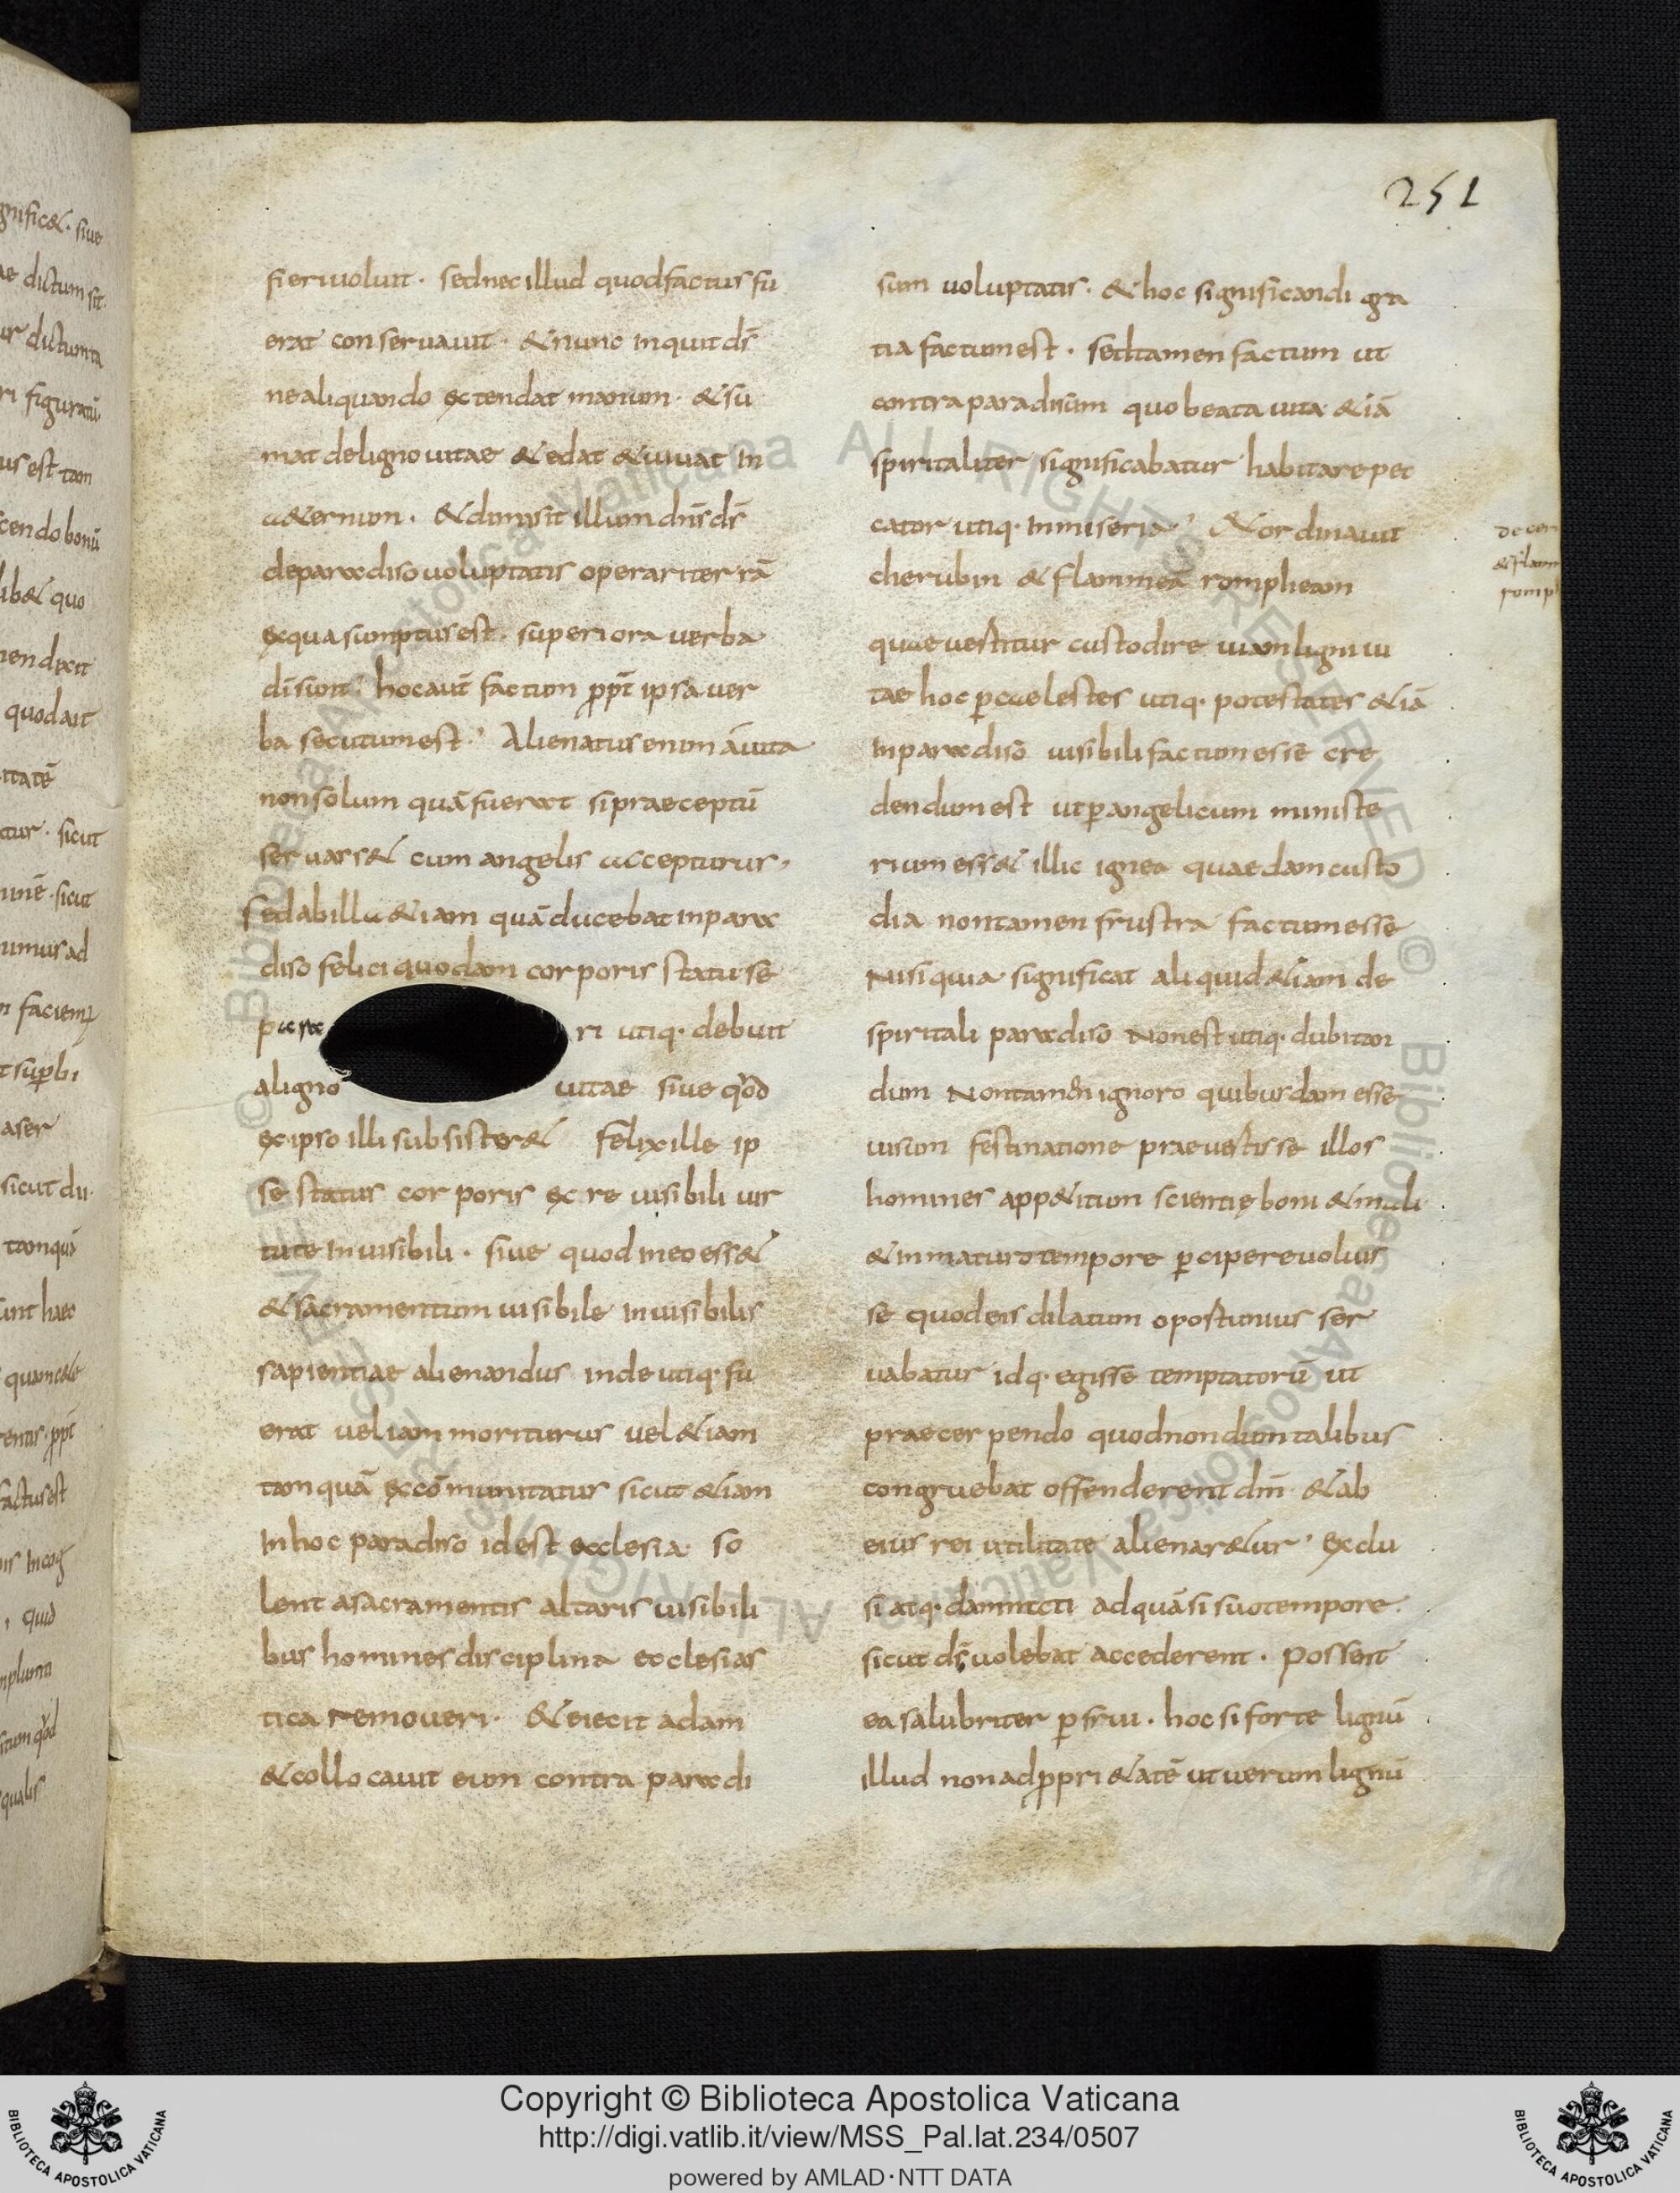 251
fieri voluit · sed nec illud quod factus fu
erat conservavit · & nunc inquit d̄s
ne aliquando extendat manum · & su
mat de ligno vitae & edat & vivat in
a&ernum · & dimisit illum dn̄s d̄s
de paradiso voluptatis operari terrā
ex qua sumptus est · superiora verba
dī sunt · hoc aut̄ factum ꝓpt̄ ipsa ver
ba secutum est · Alienatus enim a vita
non solum quā fuerat si praeceptū
servass& cum angelis accepturus ·
sed ab illa &iam quā ducebat in para
diso felici quodam corporis statu se
para ri utiq· debuit
a ligno vitae sive qd̄
ex ipso illi subsister& felix ille ip
se status corporis ex re visibili vir
tute invisibili · sive quod in eo ess&
& sacramentum visibile invisibilis
sapientiae alienandus inde utiq· fu
erat vel iam moriturus vel &iam
tanquā excōmunicatur sicut &iam
in hoc paradiso id est ecclesia so
lent a sacramentis altaris visibili
bus homines disciplina ecclesias
tica removeri · & eiecit adam
& collocavit eum contra paradi
sum voluptatis · & hoc significandi gra
tia factum est · sed tamen factum ut
contra paradisum quo beata vita &iā
spiritaliter significabatur habitare pec
cator utiq· in miseria · & ordinavit
cherubin & flammeā rompheam
quae vertitur custodire viam ligni vi
tae hoc ꝑ caelestes utiq· potestates &iā
in paradiso visibili factum esse cre
dendum est ut ꝑ angelicum ministe
rium ess& illic ignea quaedam custo
dia non tamen frustra factum esse
nisi quia significat aliquid &iam de
spiritali paradiso non est utiq· dubitan
dum non tamen ignoro quibusdam esse
visum festinatione praevertisse illos
homines app&itum scientię boni & mali
& inmaturo tempore ꝑcipere voluis
se quod eis dilatum oportunius ser
vabatur idq· egisse temptatorū ut
praecerpendo quod nondum talibus
congruebat offenderent dm̄ & ab
eius rei utilitate alienar&ur · exclu
si atq· damnati ad quā si suo tempore
sicut d̄s volebat accederent · possent
ea salubriter ꝑfrui · hoc si forte lignū
illud non ad ꝓpri&atē ut verum lignū
de cer
& flam
romp
Copyright © Biblioteca Apostolica Vaticana
http://digi.vatlib.it/view/MSS_Pal.lat.234/0507
powered by AMLAD·NTT DATA
BIBLIOTECA APOSTOLICA VATICANA
BIBLIOTECA APOSTOLICA VATICANA
© Biblioteca Apostolica Vaticana ALL RIGHTS RESERVED